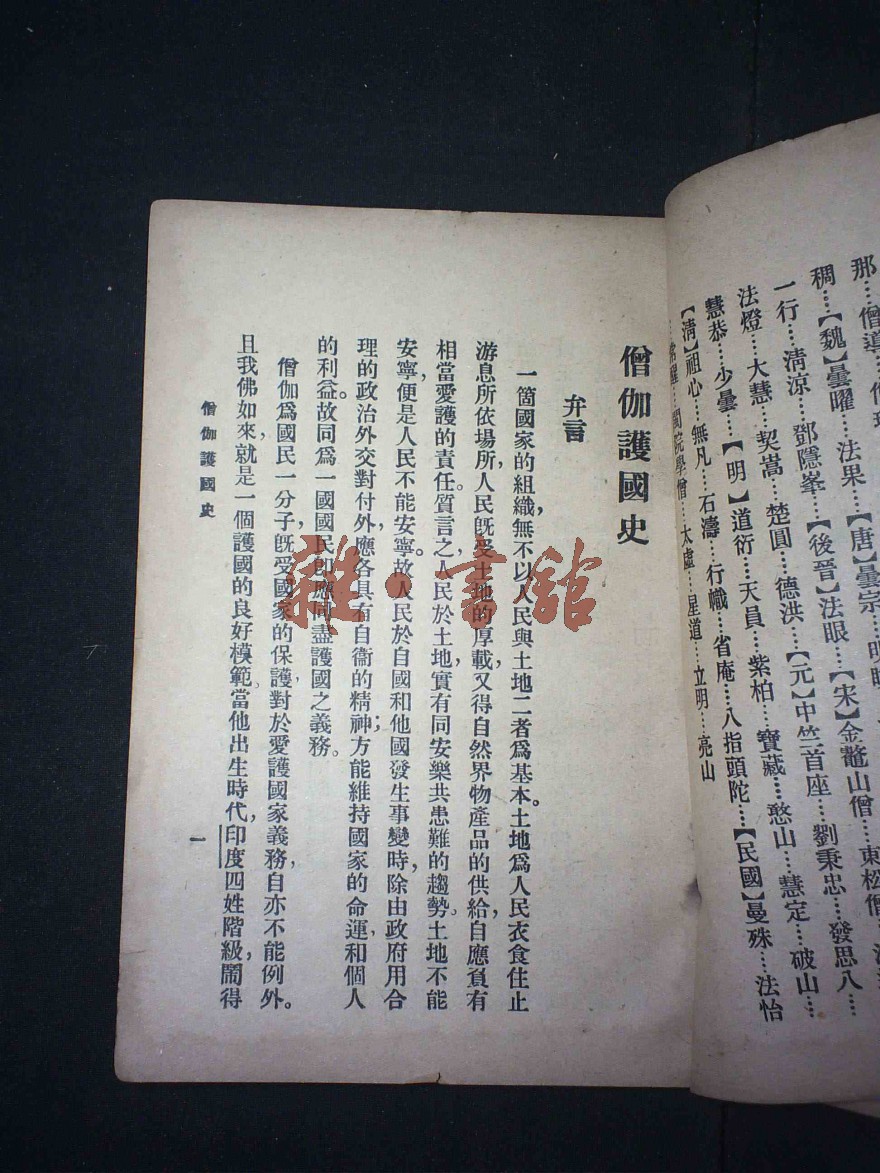 那……僧導……
稠……【魏】曇曜……法果……【唐】曇宗……明
一行……清涼……鄧隱峯……【後晉】法眼……【宋】金鼇山僧……東松僧
法燈……大慧……契嵩……楚圓……德洪……【元】中竺首座……劉秉忠……發思八……
慧恭……少曇……【明】道衍……天員……紫柏……寶藏……憨山……慧定……破山……
【清】祖心……無凡……石濤……行幟……省庵……八指頭陀……【民國】曼殊……法怡
常惺……閩院學僧……太虛……星道……立明……亮山
僧伽護國史
弁言
一箇國家的組織,無不以人民與土地二者爲基本。土地爲人民衣食住止
游息所依場所,人民旣受土地的厚載,又得自然界物產品的供給,自應負有
相當愛護的責任。質言之,人民於土地,實有同安樂共患難的趨勢。土地不能
安寧,便是人民不能安寧。故人民於自國和他國發生事變時,除由政府用合
理的政治外交對付外,應各具有自衞的精神;方能維持國家的命運,和個人
的利益。故同爲一國國民,卽應同盡護國之義務。
僧伽爲國民一分子,旣受國家的保護,對於愛護國家義務,自亦不能例外。
且我佛如來,就是一個護國的良好模範。當他出生時代,印度四姓階級,鬧得
僧伽護國史
一
雜·書館